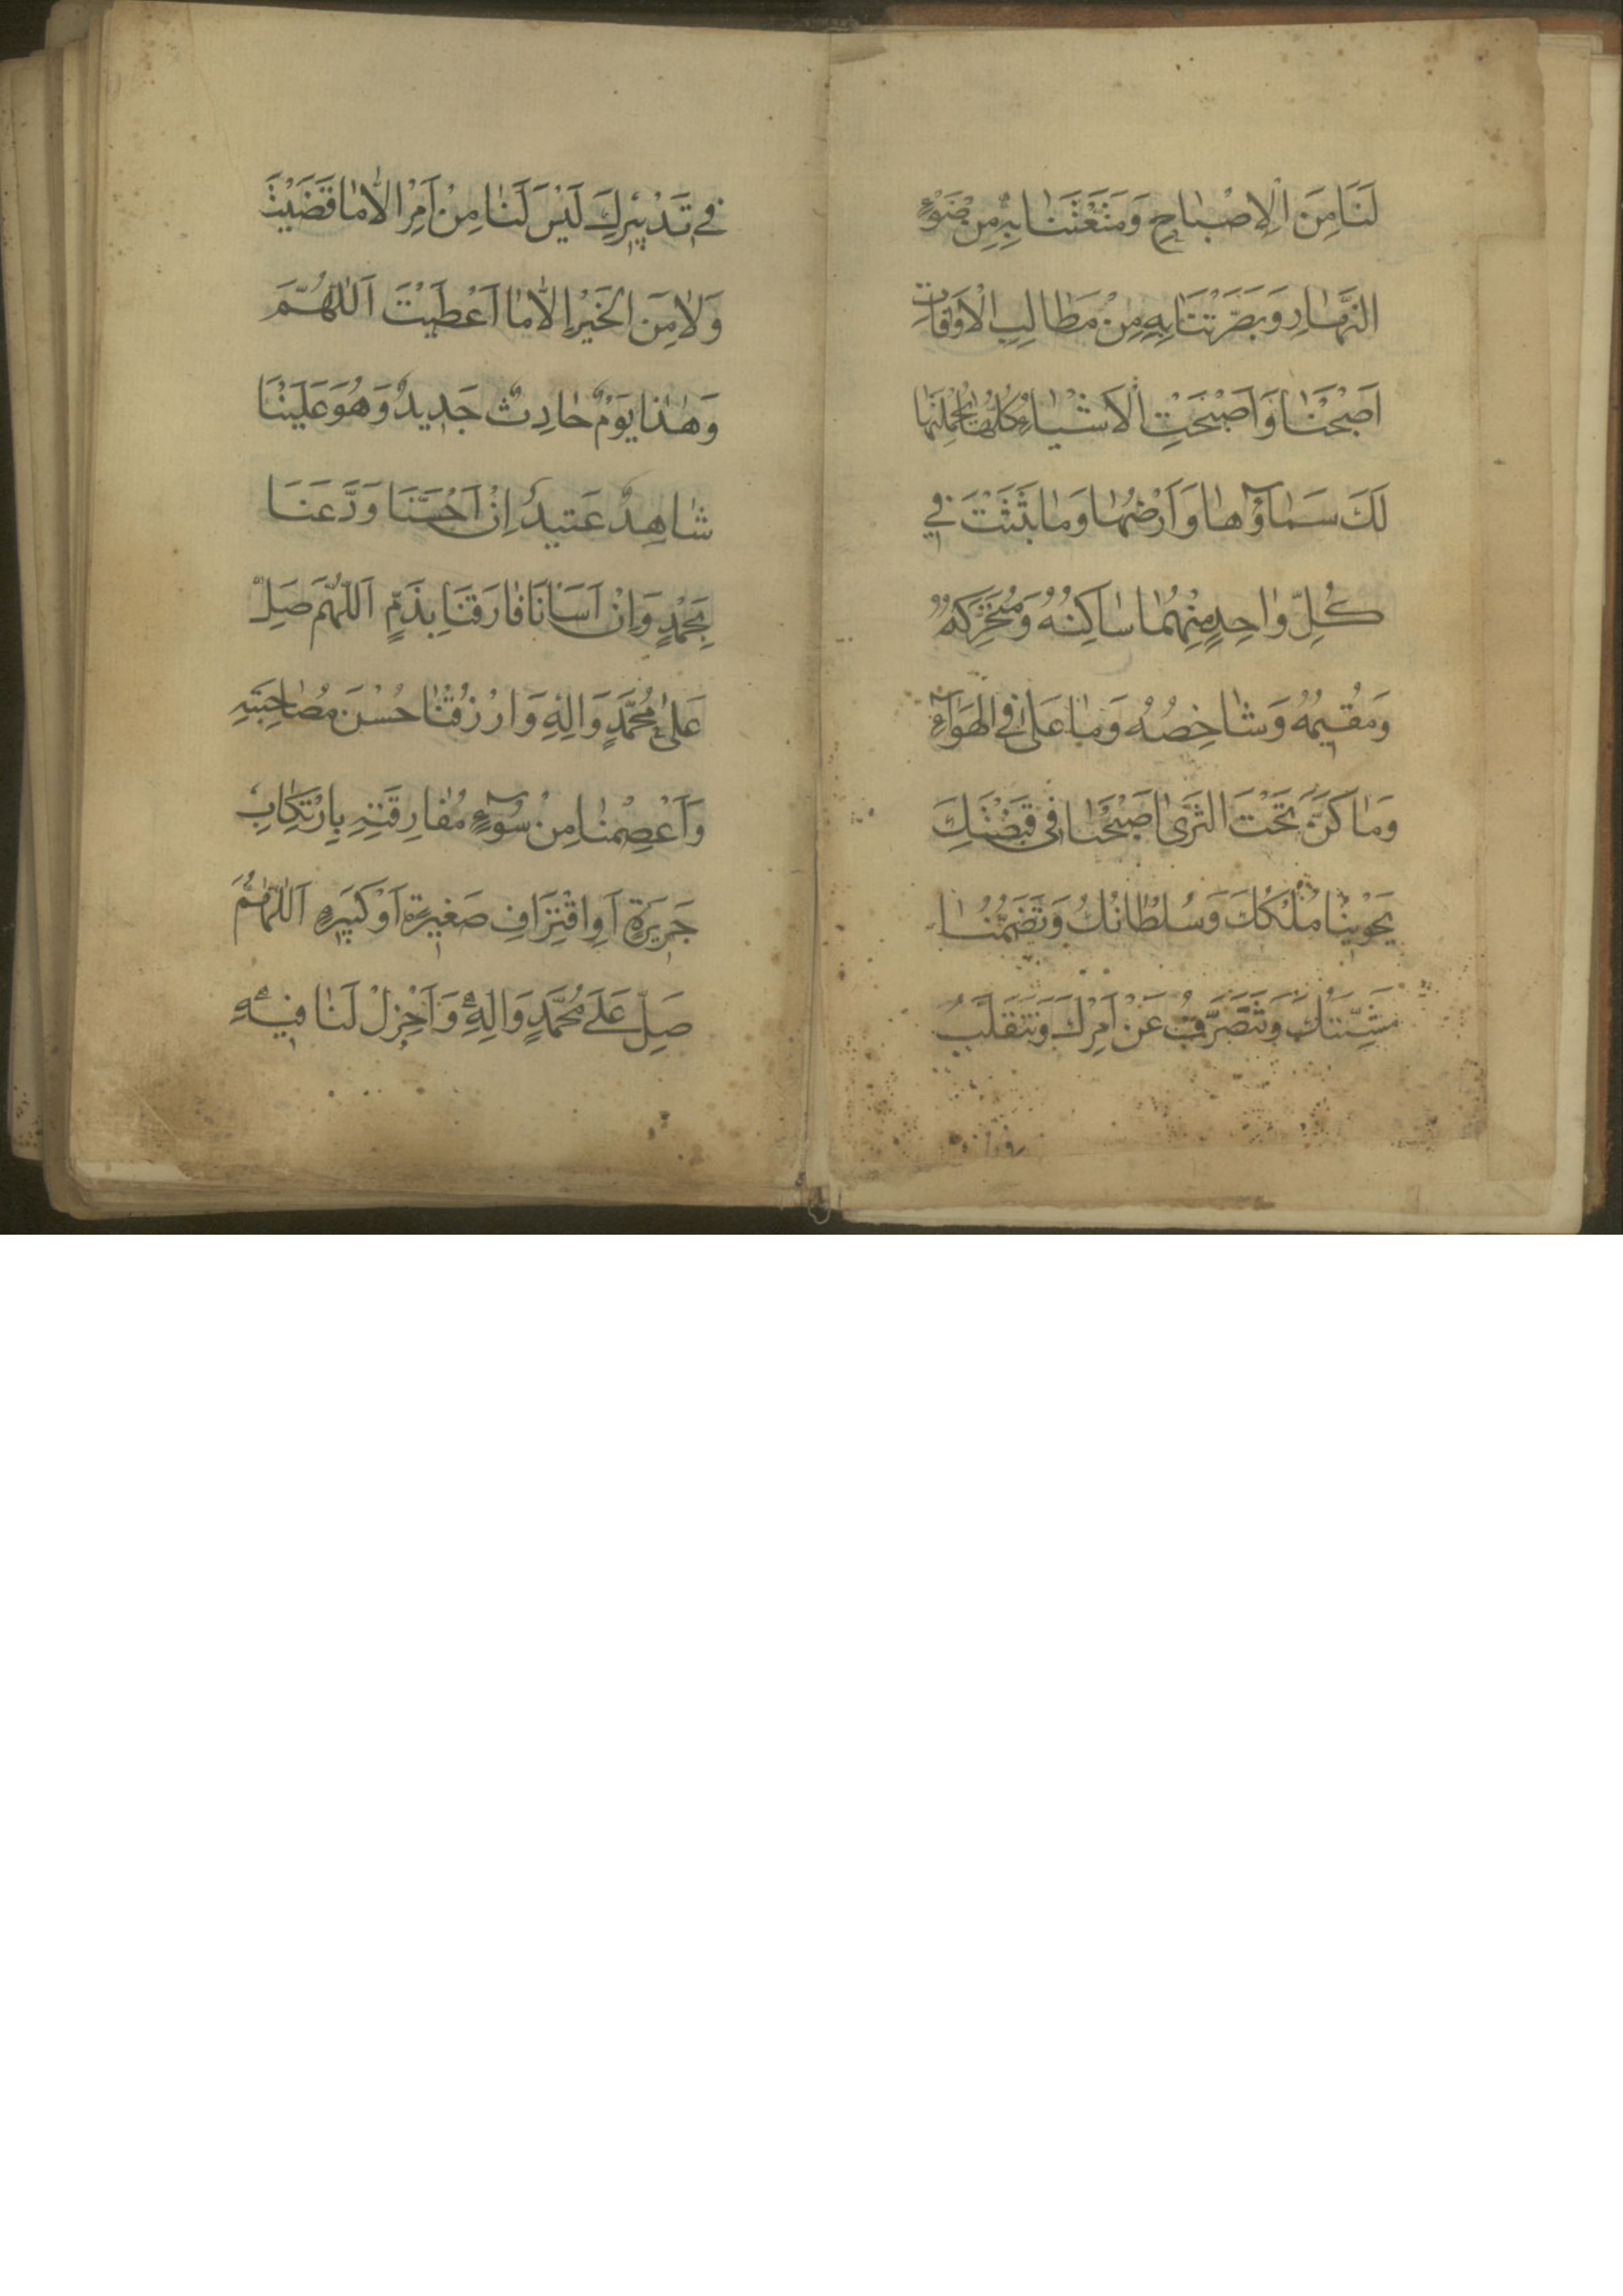 لَنَا مِنَ الْإِصْبٰاحِ وَمَتَّعْتَنٰا بِهِ مِنْ ضَوْءِ
النَّهٰارِ وَبَصَّرْتَنَا بِهِ مِنْ مَطٰالِبِ الْأَقْوَاتِ
اَصْبَحْنٰا وَاَصْبَحَتِ الْاَشْيٰاءُ كُلُّهٰا بِجُمْلَتِهٰا
لَكَ سَمٰاؤُهٰا وَاَرْضُهٰا وَمٰا بَثَثْتَ فِي
كُلِّ وٰاحِدٍ مِنْهُمٰا سٰاكِنُهُ وَمُتَحَرِّكُهُ
وَمُقِيمُهُ وَشٰاخِصُهُ وَمٰا عَلٰى فِي الْهَوَآءِ
وَمٰا كَنَّ تَحْتَ الثَّرٰى اَصْبَحْنٰا فِي قَبْضَتِكَ
يَحْوِينٰا مُلْكُكَ وَسُلْطٰانُكَ وَتَضُمُّنٰا
مَشِيَّتُكَ وَنَتَصَرَّفُ عَنْ اَمْرِكَ وَنَتَقَلَّبُ
فِي تَدْبِيرِكَ لَيْسَ لَنٰا مِنْ اَمْرٍ اِلَّا مٰا قَضَيْتَ
وَلٰا مِنَ الْخَيْرِ اِلَّا مٰا اَعْطَيْتَ اَللّٰهُمَّ
وَهٰذٰا يَوْمٌ حٰادِثٌ جَدِيدٌ وَهُوَ عَلَيْنَا
شٰاهِدٌ عَتِيدٌ اِنْ اَحْسَنَّا وَدَّعَنَا
بِحَمْدٍ وَاِنْ اَسَانَا فٰارَقَنَا بِذَمٍّ اَللّٰهُمَّ صَلِّ
عَلٰى مُحَمَّدٍ وَاٰلِهِ وَارْزُقْنٰا حُسْنَ مُصٰاحَبَتِهِ
وَاَعْصِمْنٰا مِنْ سُوٓءِ مُفٰارِقَتِهِ بِارْتِكٰابِ
جَرِيرَةٍ اَوِ اقْتِرَافِ صَغِيرَةٍ اَوْ كَبِيرَةٍ اَللّٰهُمَّ
صَلِّ عَلٰى مُحَمَّدٍ وَاٰلِهِ وَاَجْزِلْ لَنٰا فِيهِ